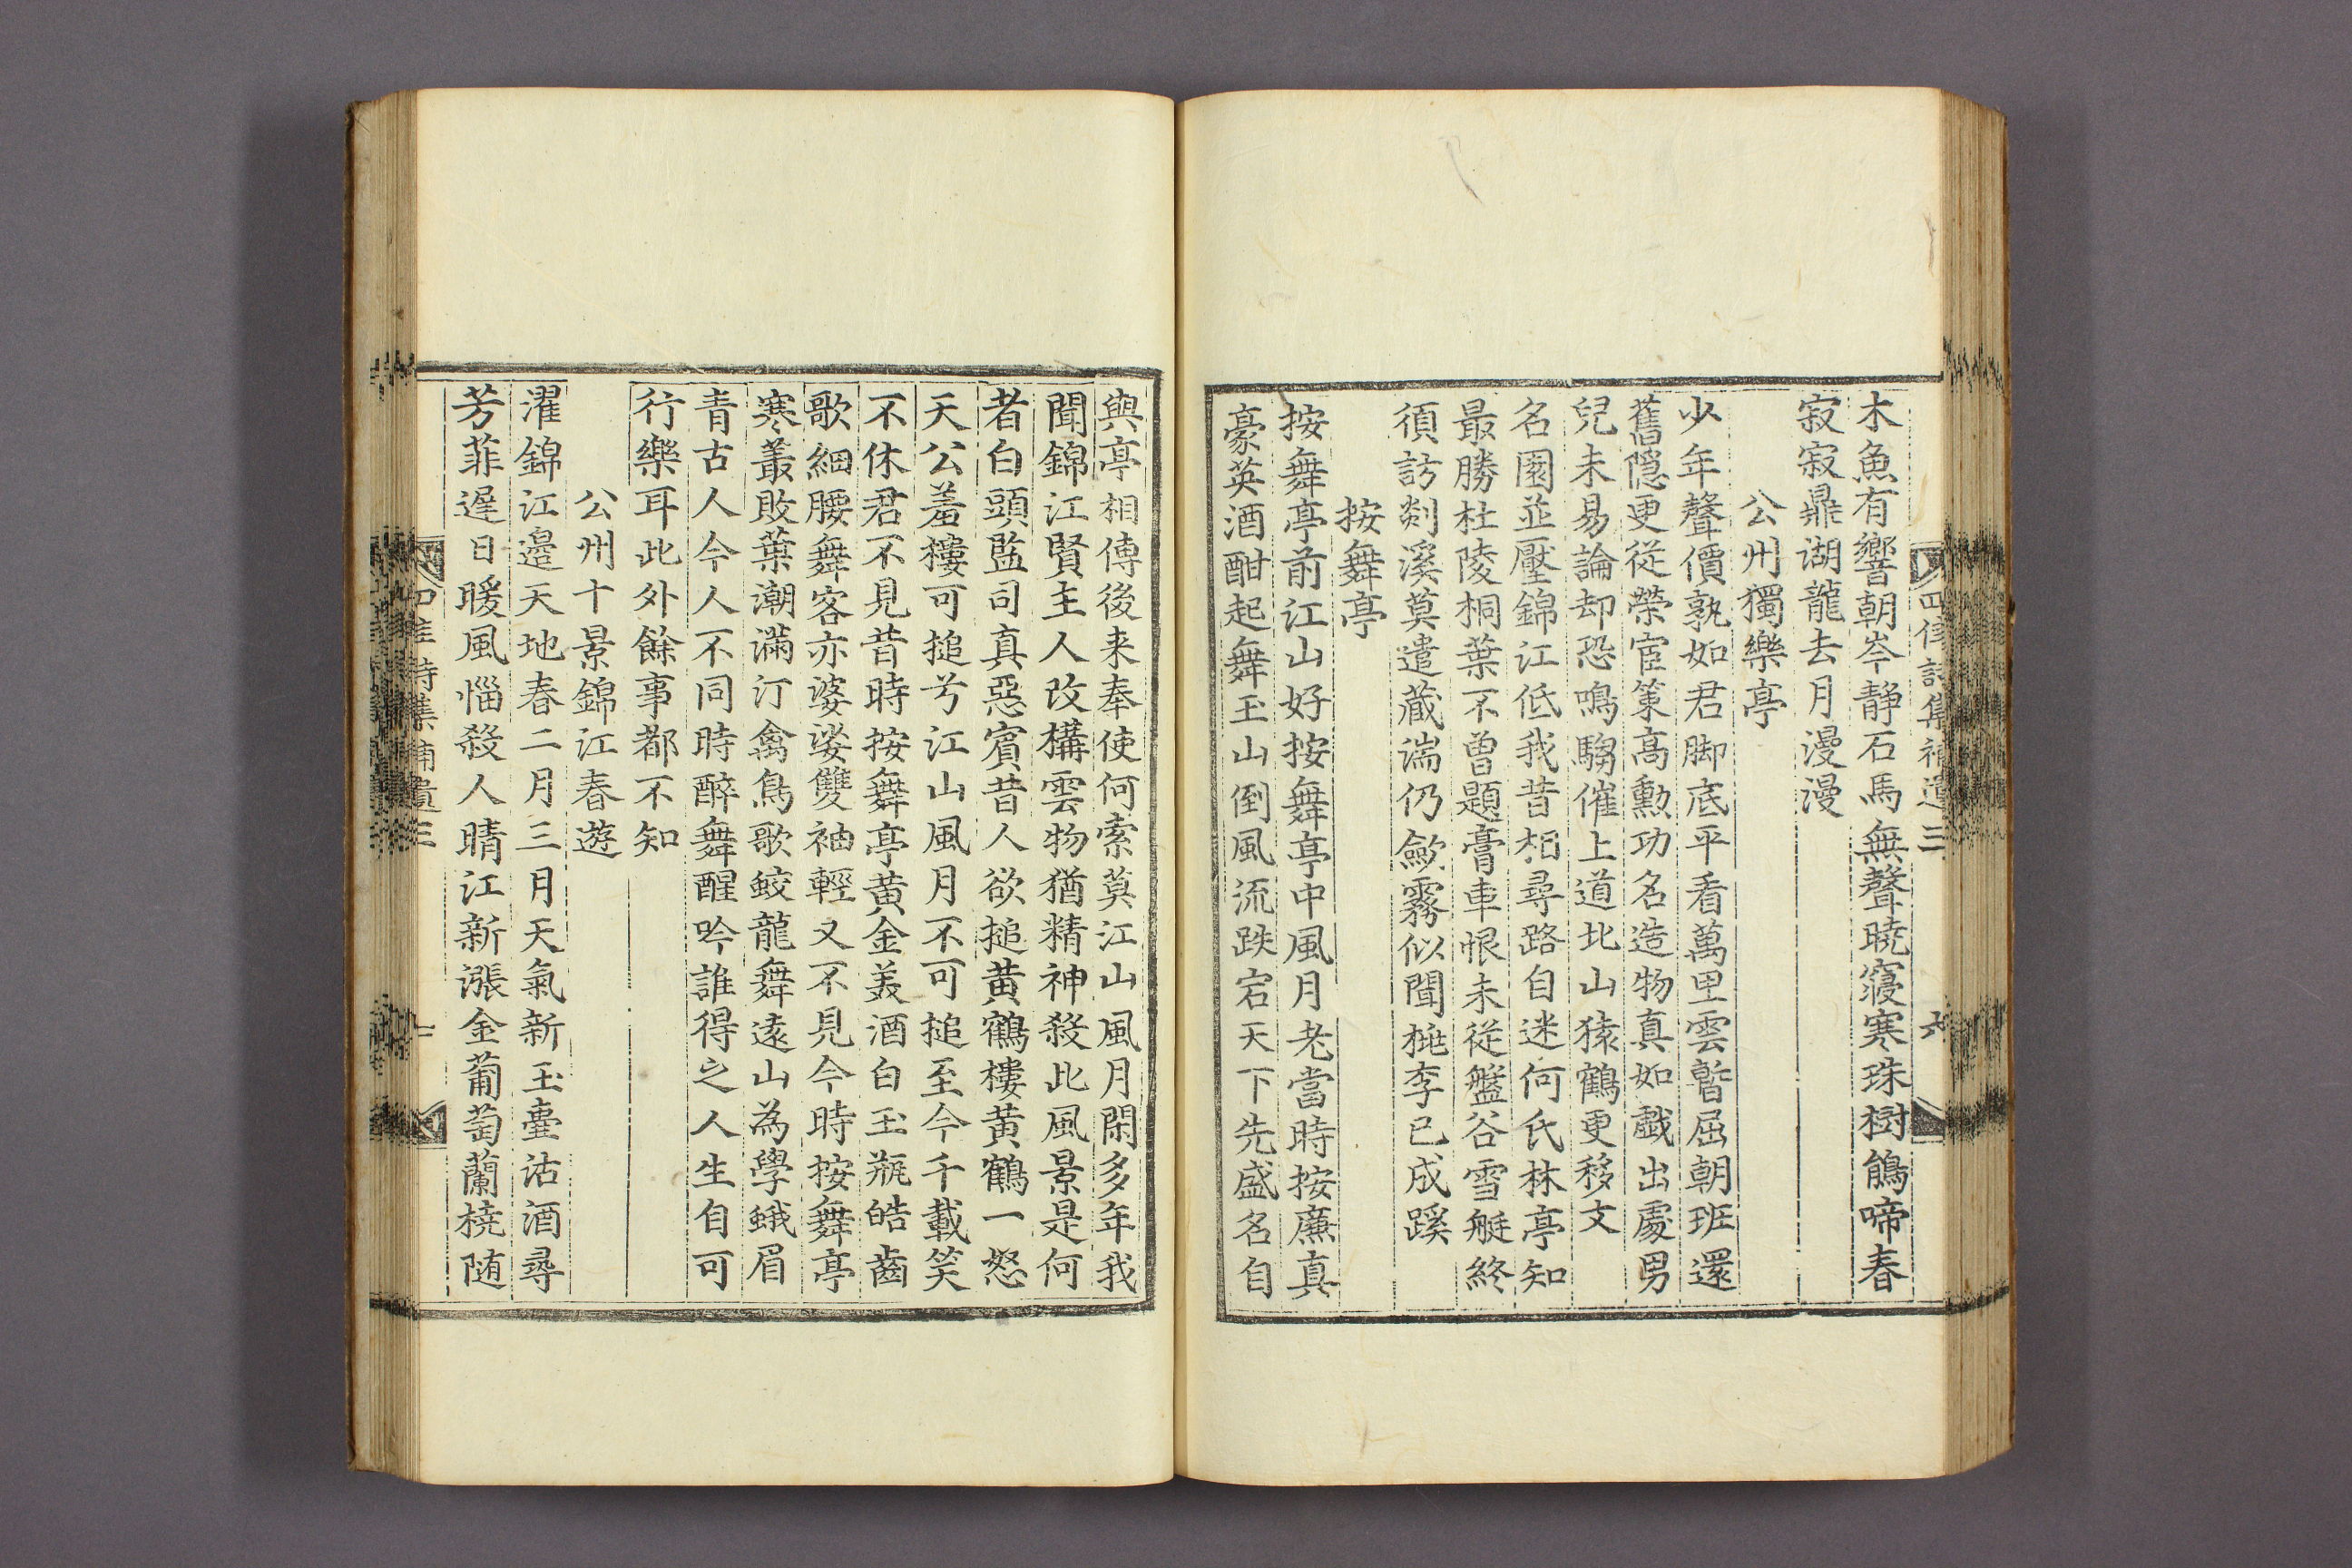 木魚有響朝岑静石馬無聲曉寢寒珠樹鵑啼春
寂寂鼎湖龍去月漫漫
公州獨樂亭
少年聲價孰如君脚底平看萬里雲暫屈朝班還
舊隱更從榮宦策高勳功名造物真如戱出處男
兒未易論却恐鳴騶催上道北山猿鶴更移文
名園並壓錦江低我昔相尋路自迷何氏林亭知
最勝杜陵桐葉不曾題膏車恨未從盤谷雪艇終
須訪剡溪莫遣藏湍仍歛霧似聞桃李已成蹊
按舞亭
按舞亭前江山好按舞亭中風月老當時按廉真
豪英酒酣起舞玉山倒風流跌宕天下先盛名自
與亭相傳後来奉使何索莫江山風月閑多年我
聞錦江賢主人改構雲物猶精神殺此風景是何
者白頭監司真惡賓昔人欲搥黄鶴樓黄鶴一怒
天公羞樓可搥兮江山風月不可搥至今千載笑
不休君不見昔時按舞亭黄金美酒白玉瓶皓齒
歌細腰舞客亦婆娑雙袖輕又不見今時按舞亭
寒叢敗葉潮滿汀禽鳥歌鮫龍舞遠山為學蛾眉
青古人今人不同時醉舞醒吟誰得之人生自可
行樂耳此外餘事都不知
公州十景錦江春遊
濯錦江邉天地春二月三月天氣新玉臺沽酒尋
芳菲遅日暖風惱殺人晴江新漲金葡萄蘭橈随